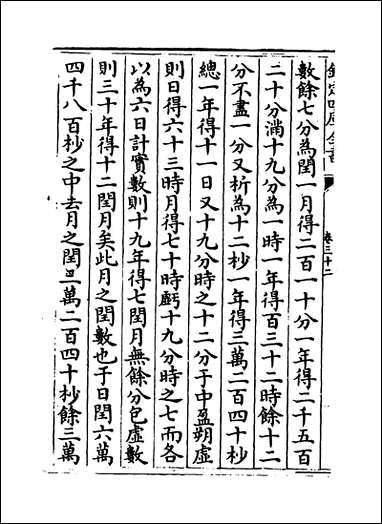 欽定四庫全書
卷三十二
數餘七分為閏一月得二百一十分一年得二千五百
二十分滿十九分為一時一年得百三十二時餘十二
分不盡一分又析為十二杪一年得三萬二百四十杪
總一年得十一日又十九分時之十二分于中盈朔虛
則日得六十三時月得七十時虧十九分時之七而各
以為六日計實數則十九年得七閏月無餘分包虛數
則三十年得十二閏月矣此月之閏數也于日閏六萬
四千八百杪之中去月之閏三萬二百四十杪餘三萬